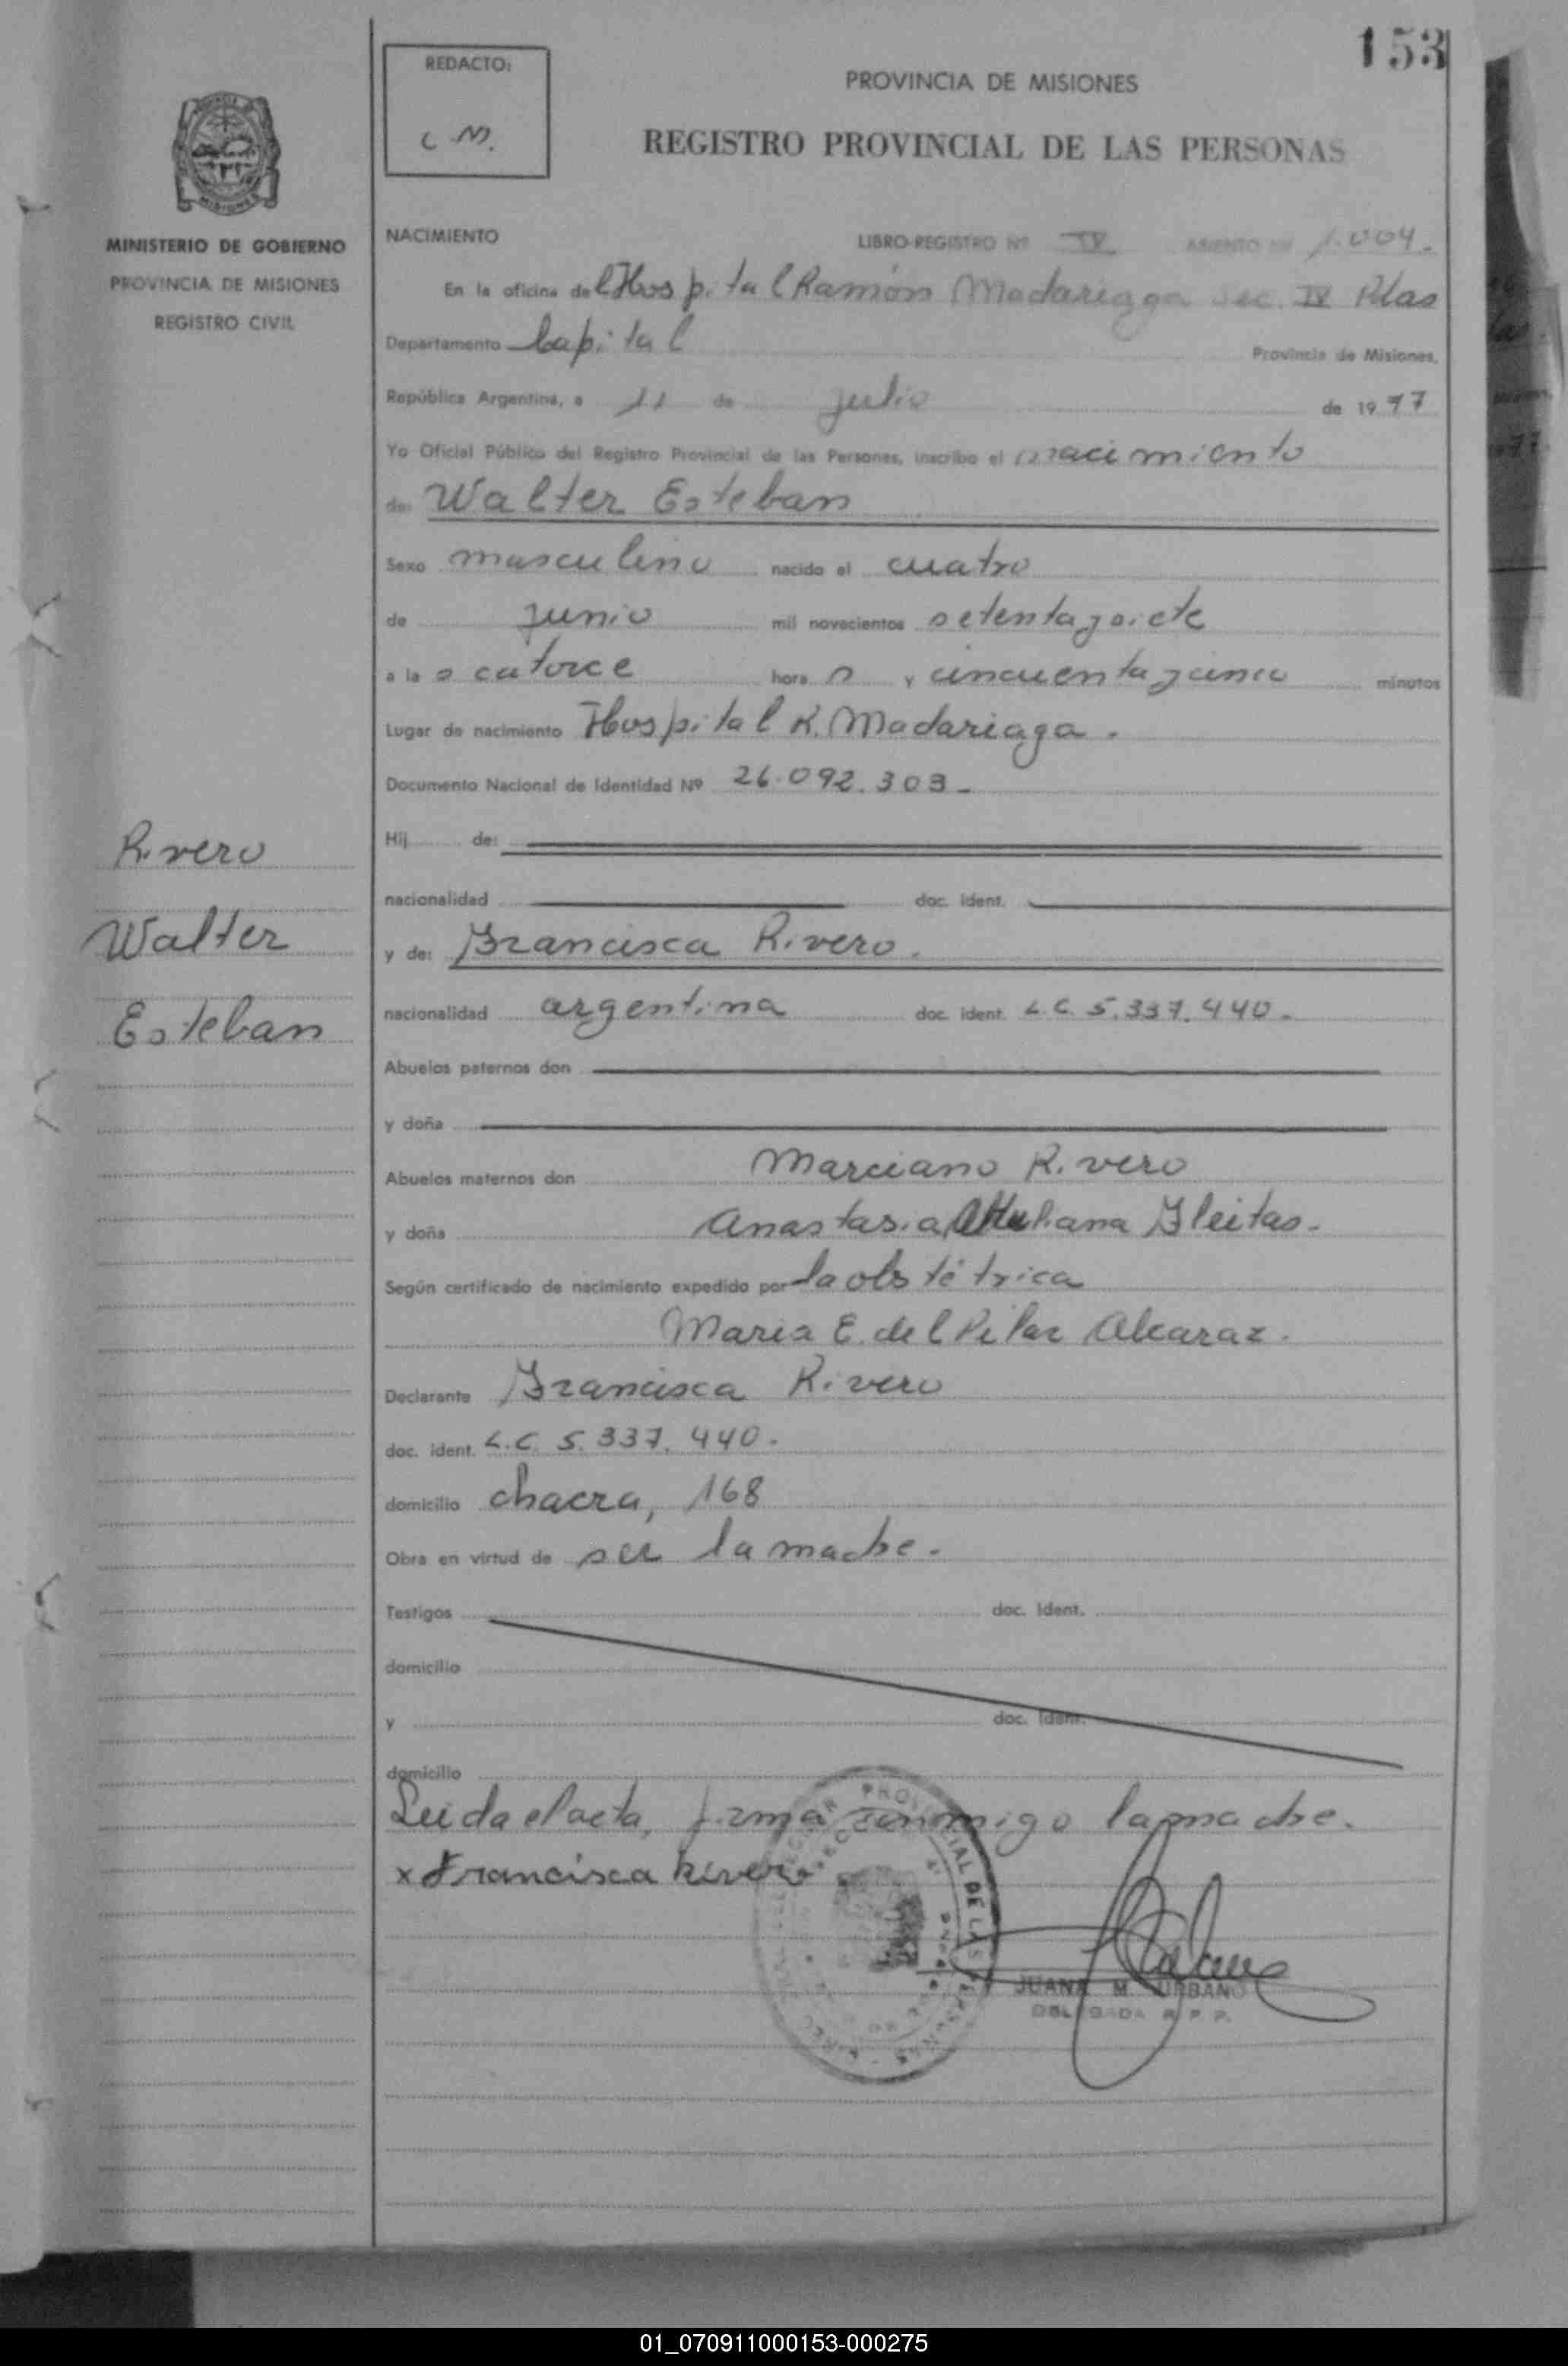 153
REDACTO:
C M.
PROVINCIA DE MISIONES
REGISTRO PROVINCIAL DE LAS PERSONAS
MISIONES
MINISTERIO DE GOBIERNO
PROVINCIA DE MISIONES
REGISTRO CIVIL
Rivero
Walter
Esteban
NACIMIENTO LIBRO-REGISTRO Nº IV ASIENTO Nº 1.004.
En la oficina del Hospital Ramón Madariaga Sec. IV Pdas
Departamento Capital Provincia de Misiones.
República Argentina, a 11 de julio de 1977
Yo Oficial Público del Registro Provincial de las Personas, inscribo el nacimiento
de: Walter Esteban
Sexo masculino nacido el cuatro
de junio mil novecientos setenta y siete
a las catorce horas y cincuenta y cinco minutos
Lugar de nacimiento Hospital R. Madariaga.
Documento Nacional de Identidad Nº 26.092.303-
Hij de:
nacionalidad doc. ident.
y de: Francisca Rivero.
nacionalidad argentina doc. ident. L.C. 5.337.440.
Abuelos paternos don
y doña
Abuelos maternos don Marciano Rivero
y doña Anastasia Gleitas.
Según certificado de nacimiento expedido por la obstétrica
Maria E. del Pilar Alcaraz.
Declarante Francisca Rivero
doc. ident. L.C. 5.337.440.
domicilio chacra, 168
Obra en virtud de ser la madre.
Testigos doc. Ident.
domicilio
y doc. Ident.
domicilio
Leida el acta, firma conmigo la madre.
x Francisca Rivero
PROVINCIAL DE LAS PERSONAS
JUANA M. URBANO
DELEGADA R. P. P.
01_070911000153-000275